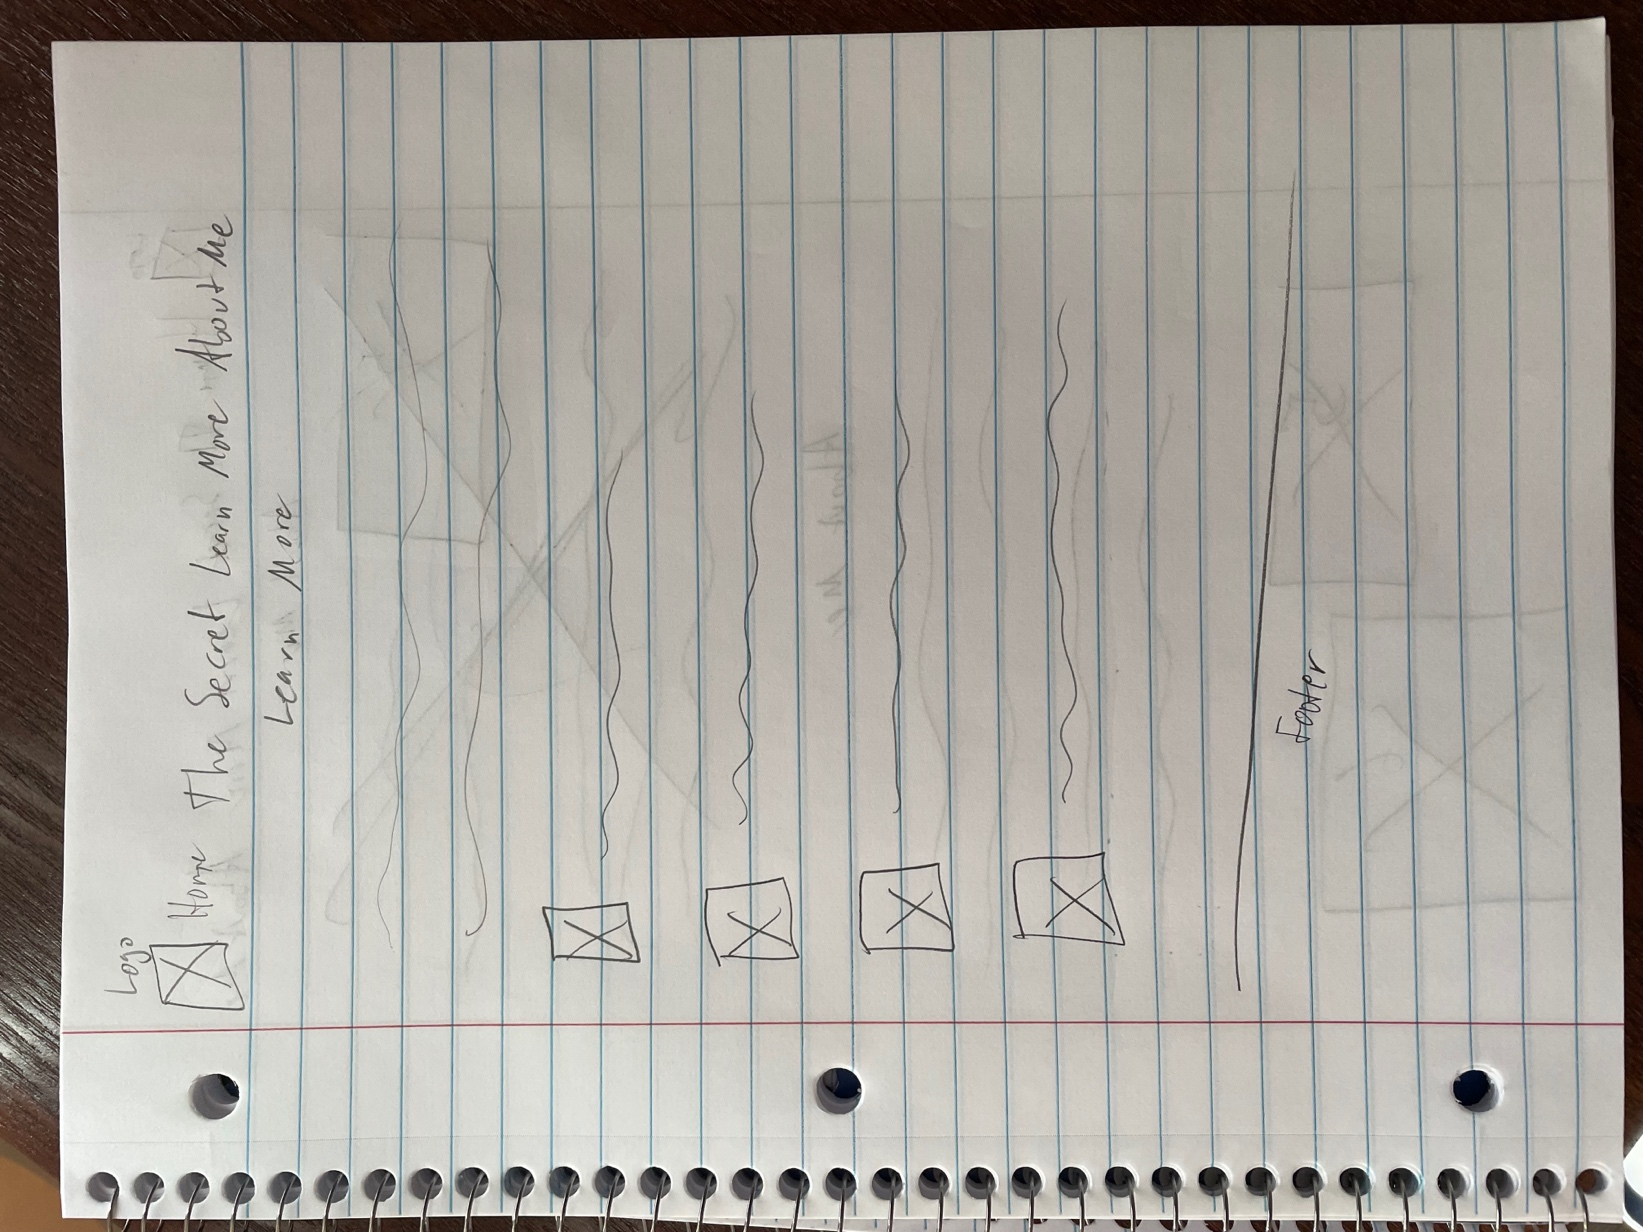 Logo
Home The Secret Learn More About Me
Learn More
Footer